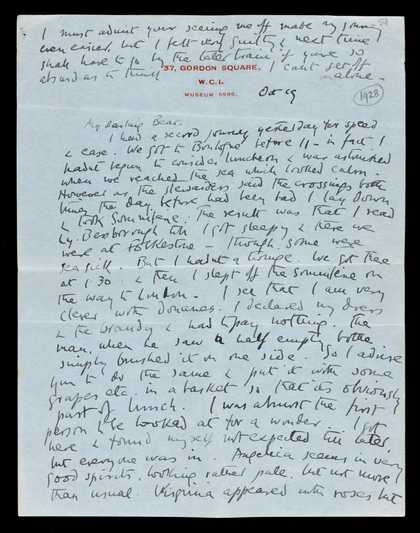 I must admit your seeing me off made my journey
even easier, but I felt very guilty & next time
shall have to go by the later train if you're so
absurd as to think I can't get off
alone.
37, GORDON SQUARE,
W.C.1.
MUSEUM
Oct 19
1928
My darling Bear.
I had a record journey yesterday for speed
& ease. We got to Boulogne before 11 - in fact I
hadn't begun to consider luncheon & was astonished
when we reached the sea which looked calm.
However as the stewardess said the crossings both
times the day before had been bad I lay down
& took Somnifene. The result was that I read
Ly. Bessborough till I got sleepy & there we
were at Folkestone - though some were
sea sick. But I hadn't a twinge. We got there
at 1.30 & then I slept off the somnifene on
the way to London - I see that I am very
clever with Douanes. I declared my dress
& the brandy & had to pay nothing. The
man, when he saw a half empty bottle
simply brushed it on one side. So I advise
you to do the same & put it with some
grapes etc. in a basket so that it's obviously
part of lunch. I was almost the first
person to be looked at for a wonder. I got
here & found myself not expected till later,
but everyone was in. Angelica seems in very
good spirits, looking rather pale, but not more
than usual. Virginia appeared with roses but